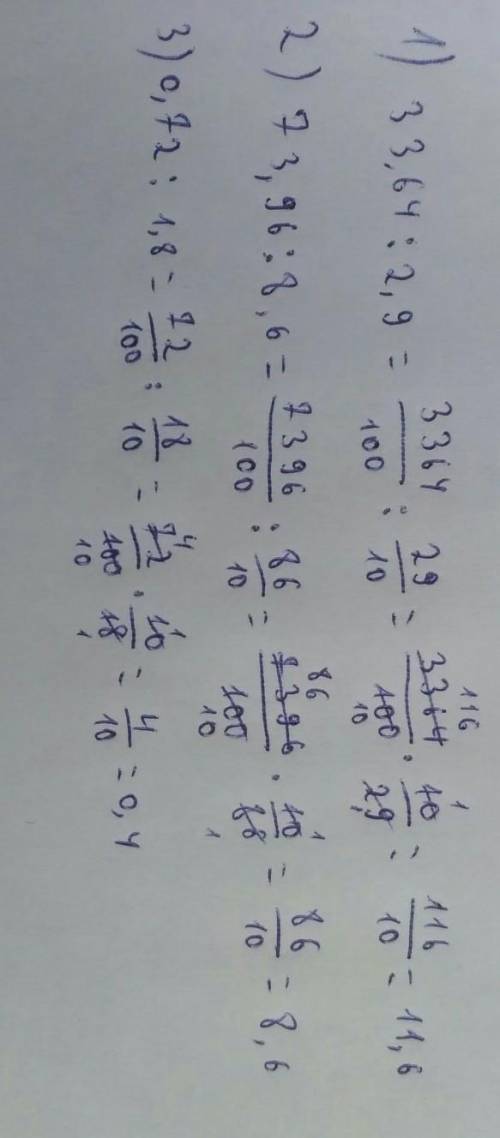 1) 33,64 : 2,9 = 3364/100 : 29/10 = 3364/100 · 10/29 = 116/10 = 11,6
2) 73,96 : 8,6 = 7396/100 : 86/10 = 7396/100 · 10/88 = 86/10 = 8,6
3) 0,72 : 1,8 = 72/100 : 18/10 = 72/100 · 10/18 = 4/10 = 0,4